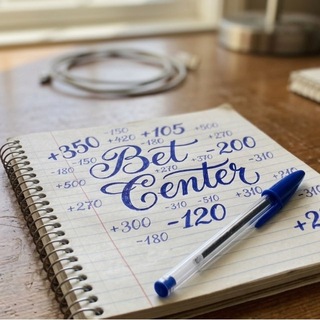 -150 +105 +500
+350 +420 -180 +270
-180 Bet -200
-180 +270 +370 -310
+500 Center -310
+270 -310 -510 -310
+300 -120
-180